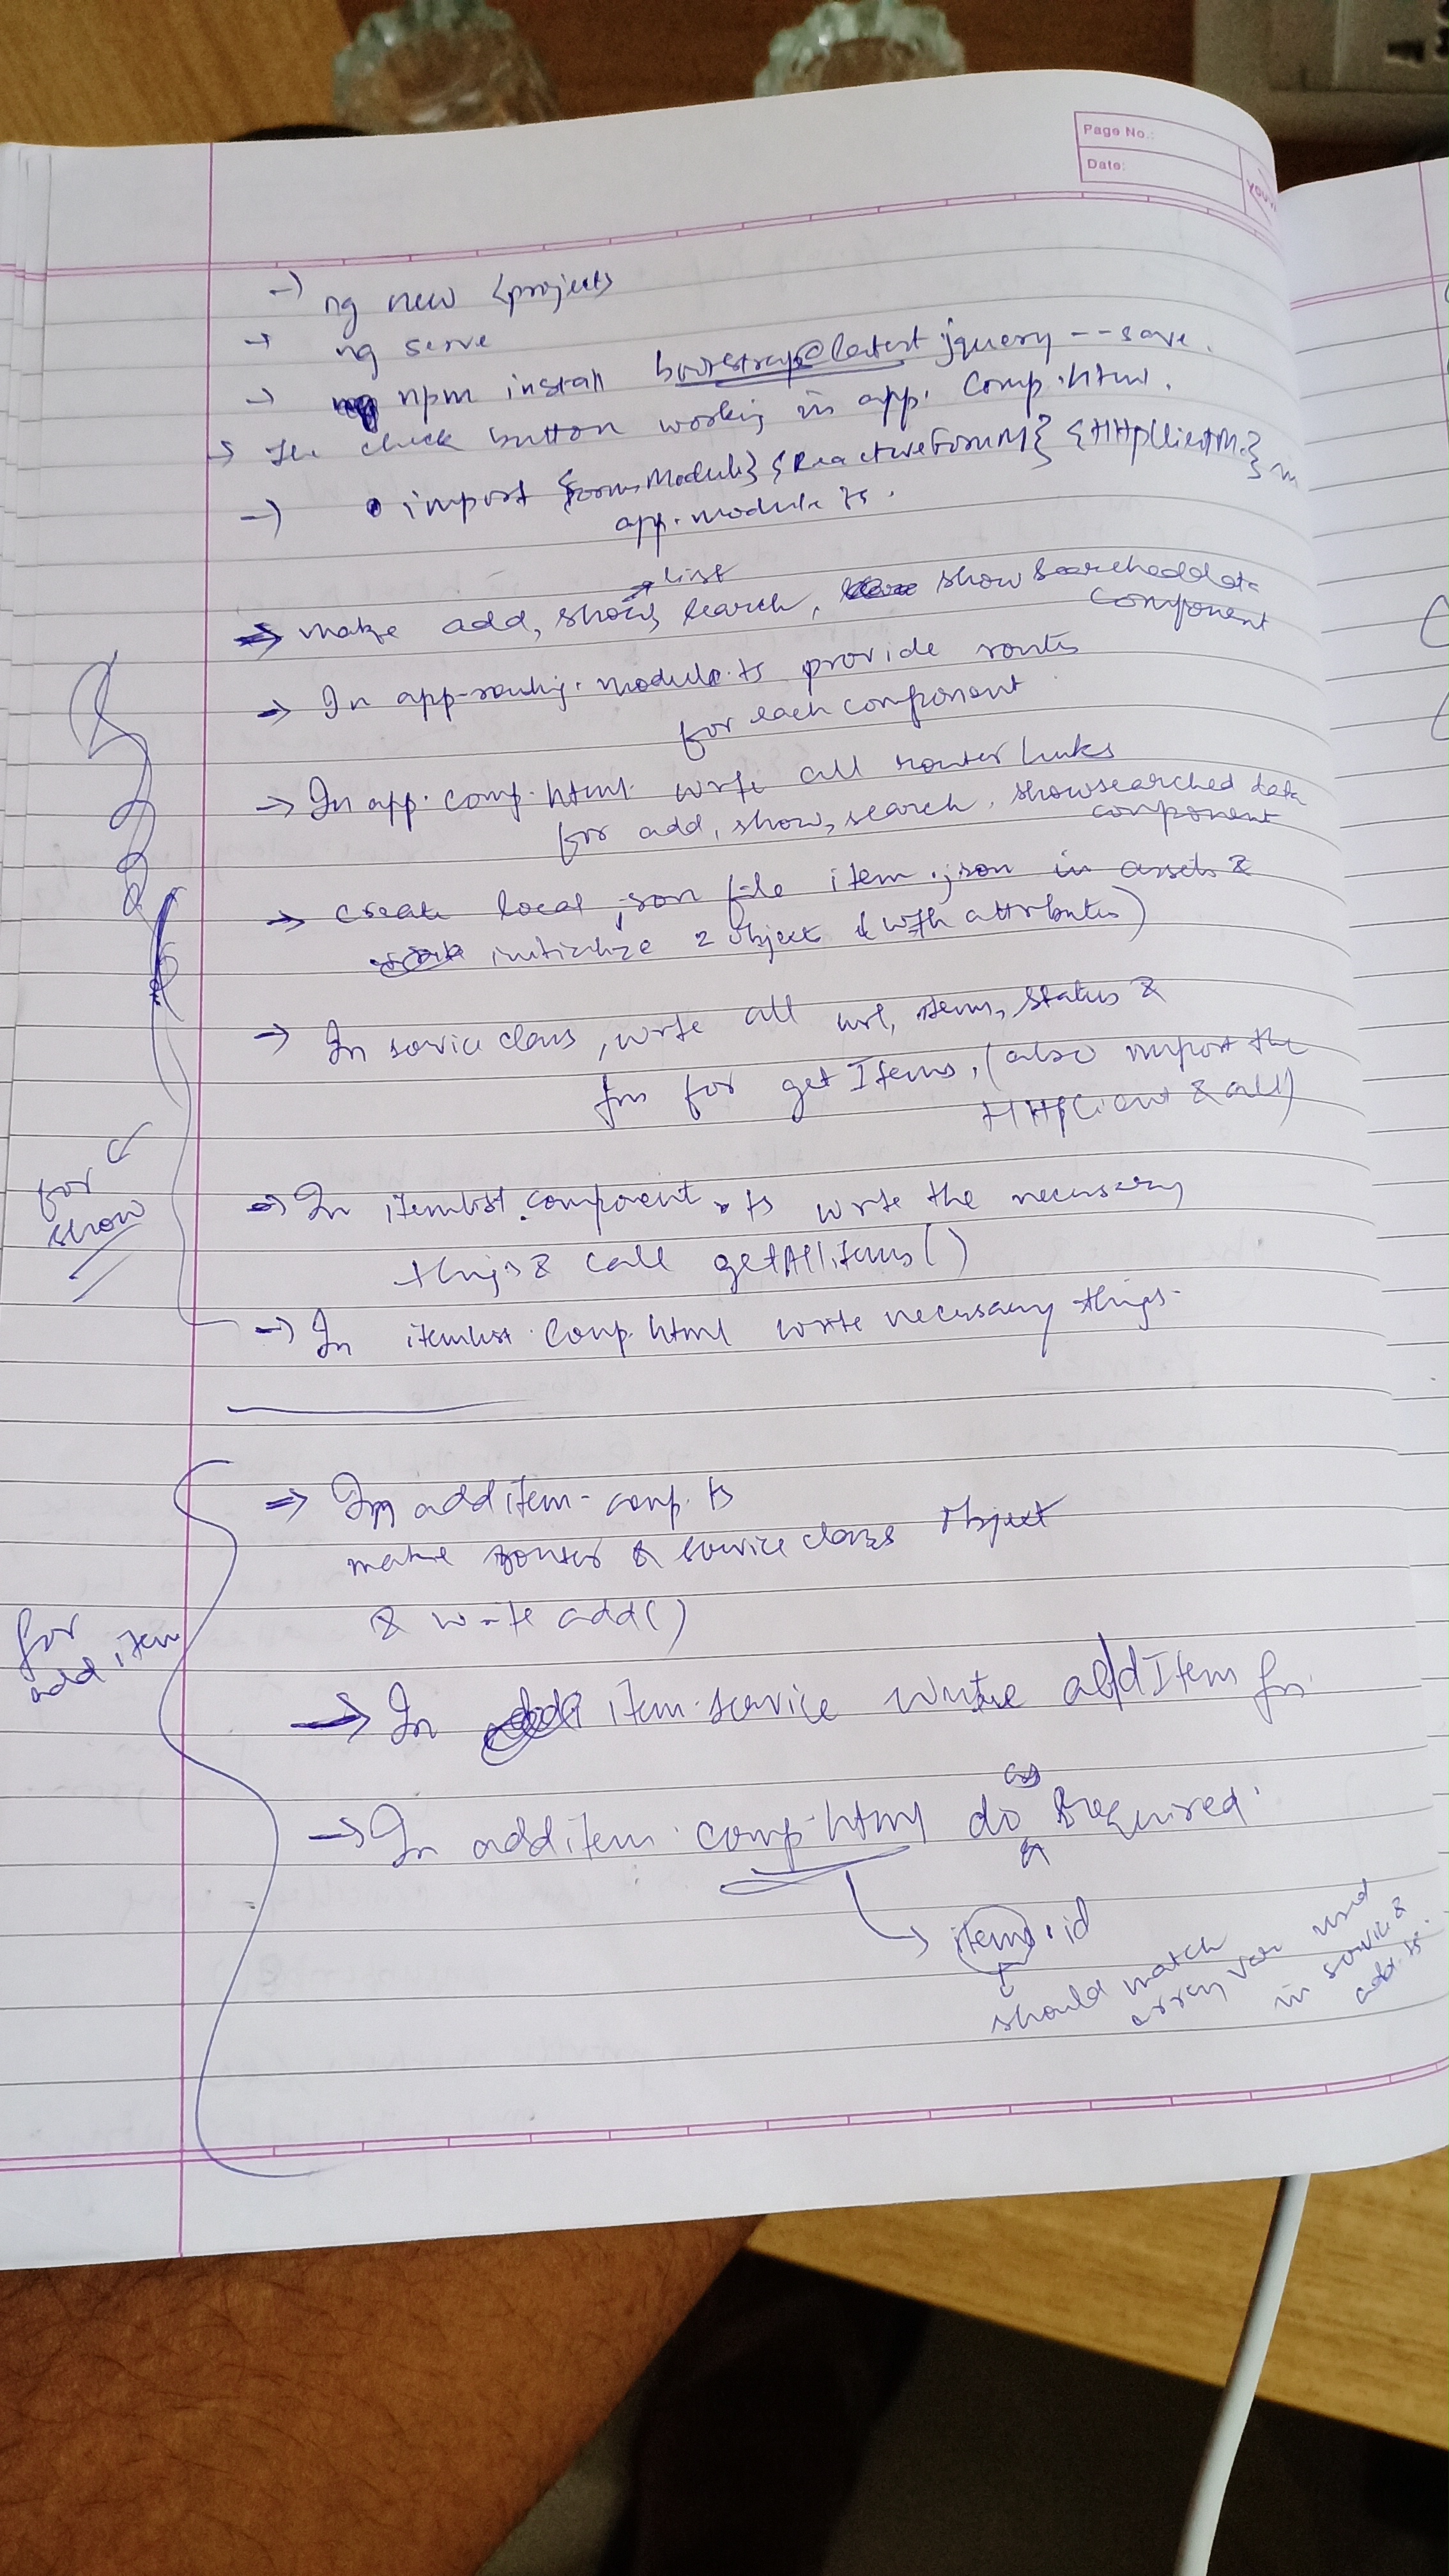 Page No.:
Date:
→ ng new <project>
→ ng serve
→ npm install bootstrap@latest jquery --save.
→ check button working in app. Comp.html.
→ import {FormsModule} {ReactiveFormM} {HttpClientM.} in
app.module ts.
list
→ make add, show, search, show searched data
component
→ In app-routing.module.ts provide routes
for each component
→ In app.comp.html write all router links
for add, show, search, showsearched data
component
→ create local json file item.json in assets &
initialize 2 object (with attributes)
→ In service class, write all url, items, status &
fn for getItems, (also import the
HttpClient & all)
for
show
→ In itemlist.component.ts write the necessary
things & call getAllitems()
→ In itemlist.comp.html write necessary things.
→ In additem-comp.ts
make router & service class object
& write add()
for
add item
→ In item-service write addItem fn.
→ In additem.comp.html do as required.
→ items.id
should match
array var used
in service &
add.ts.